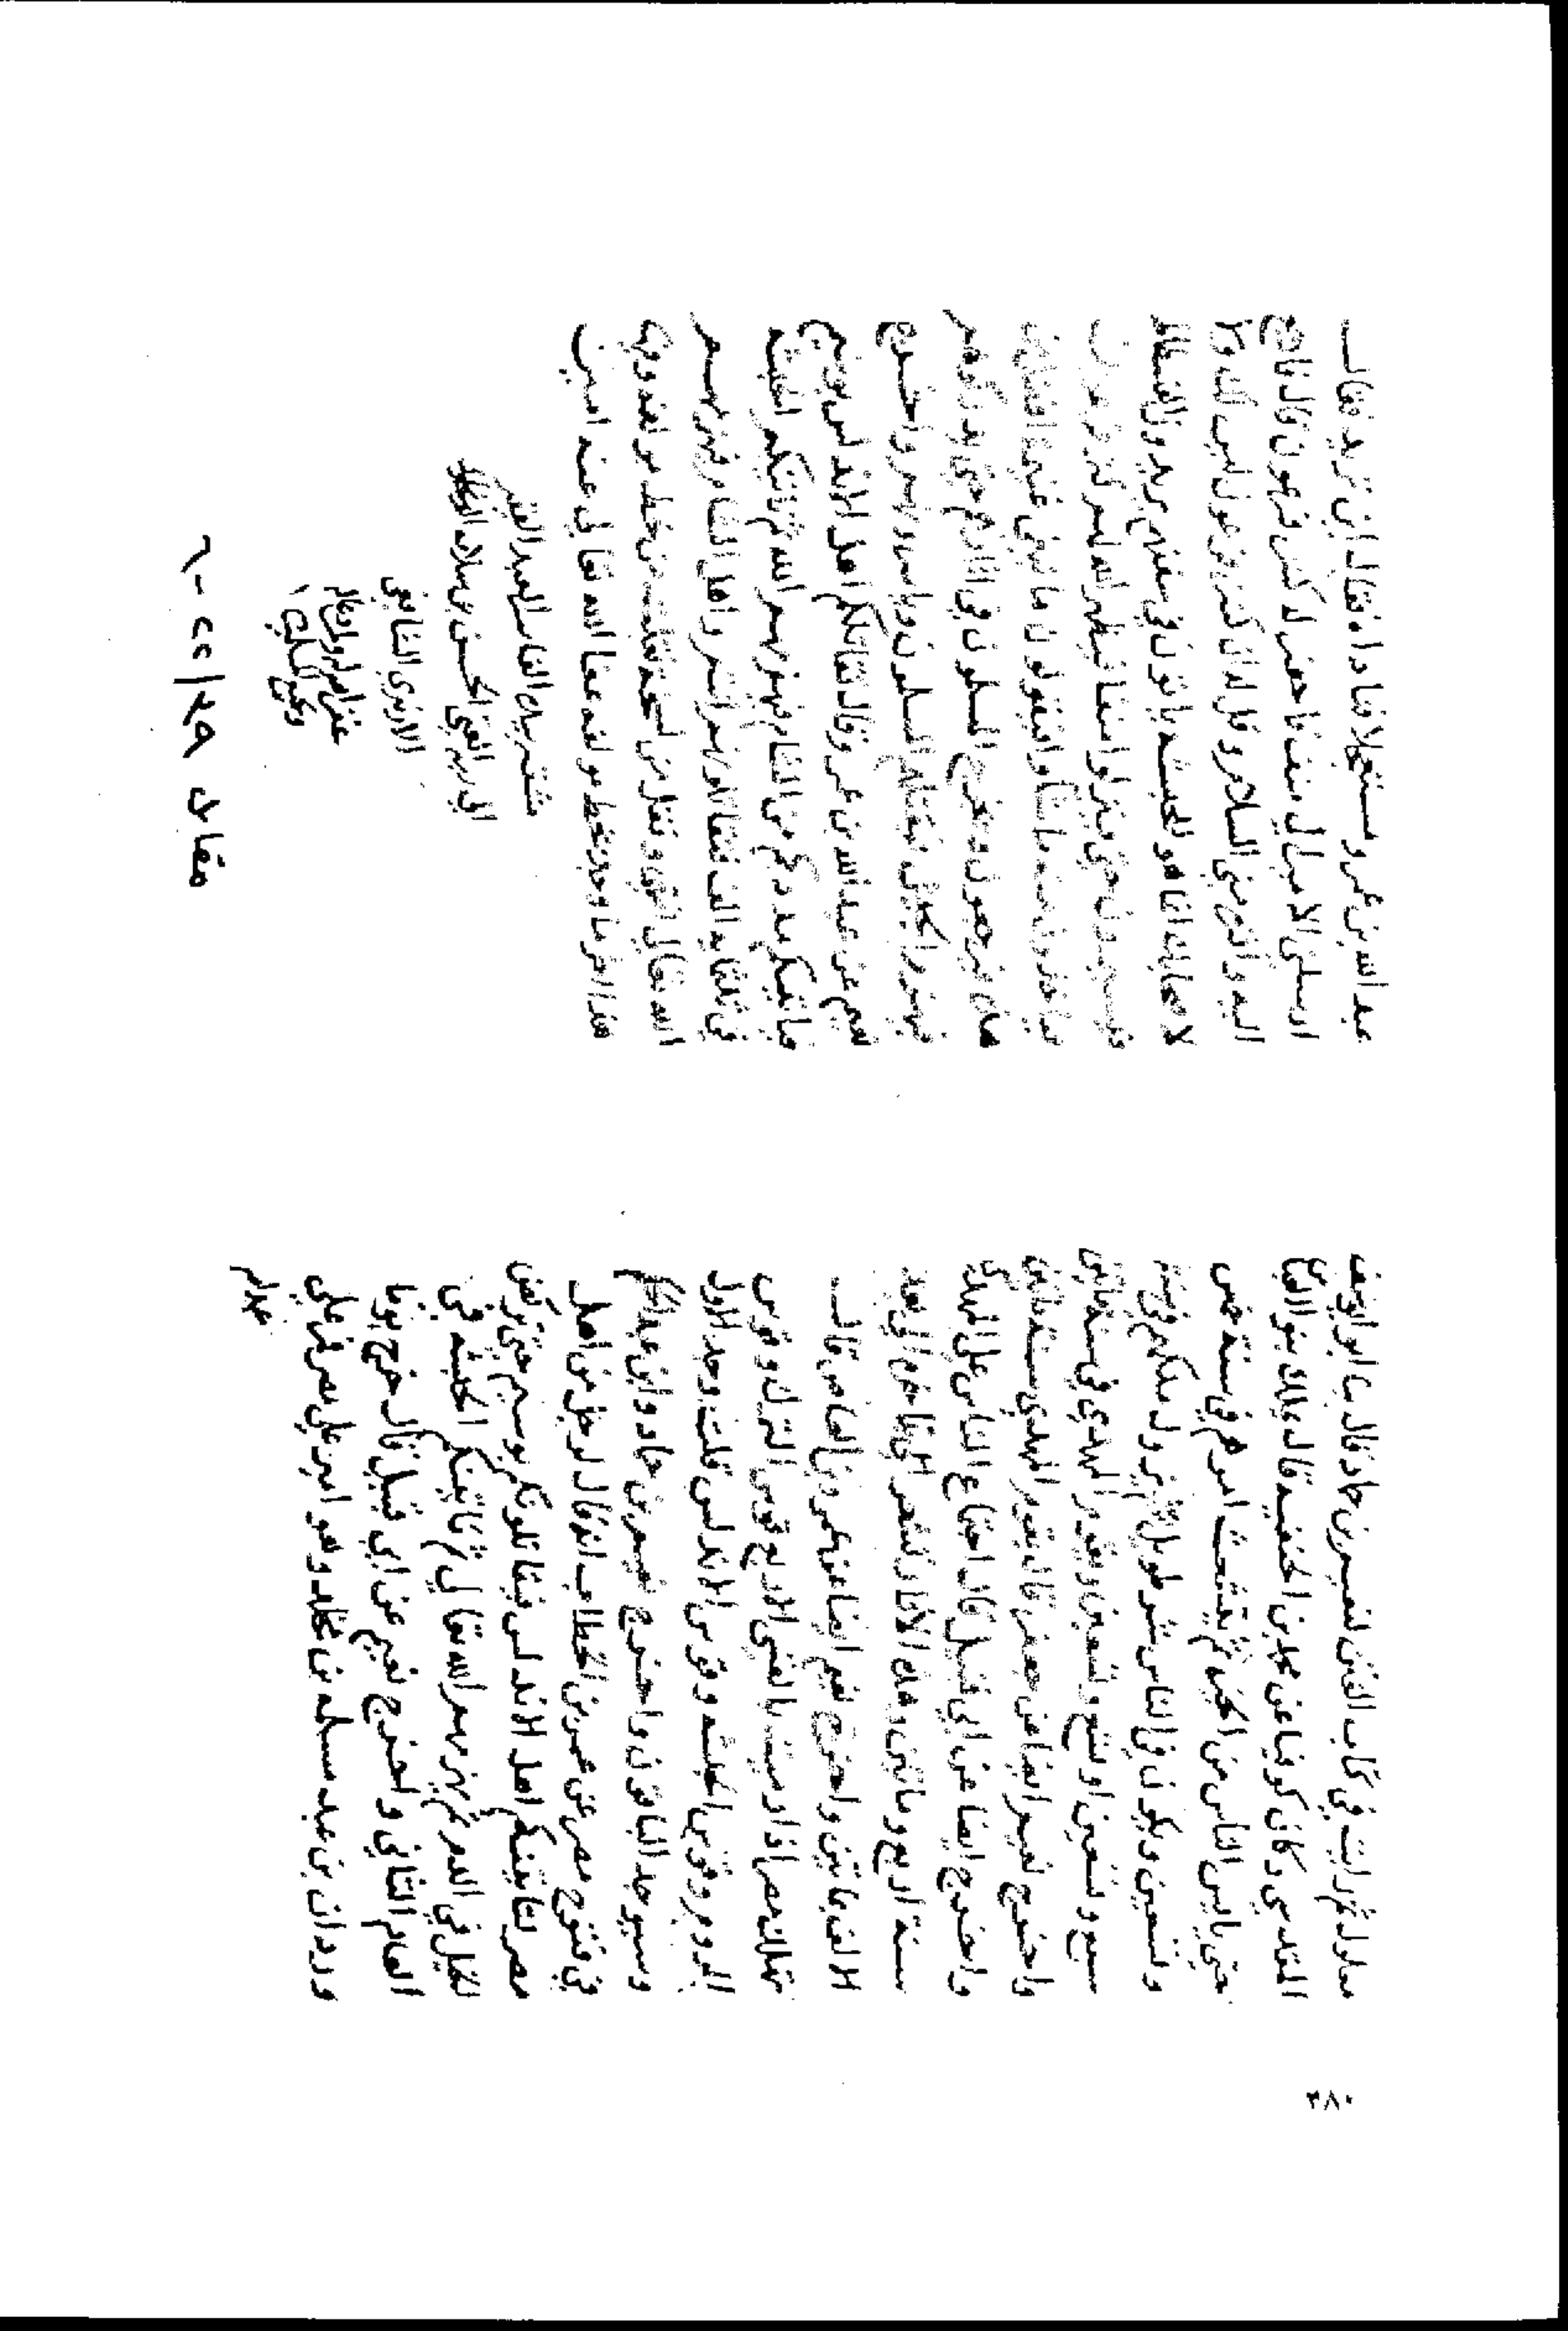 معلول ثم رايت في كتاب الفتن لنعيم بن حماد قال ثنا ابو يوسف
المقدسي وكان كوفيا عن محمد بن الحنفية قال يملك بنو العباس
حتى يايس الناس من الخير ثم يتشعث امرهم في سنة خمس
وتسعين ويكون في الناس شر طويل ثم يزول ملكهم في سنة
سبع وتسعين او تسع وتسعين ويقوم المهدي في سنة مايتين
واخرج نعيم ايضا عن جعفر قال يقوم المهدي سنة مايتين
واخرج ايضا عن ابي قبيل قال اجتماع الناس على المهدي
سنة اربع ومايتين وهذه الاثار تشعر الى تاخره الى بعد
الالف بمايتين واخرج نعيم ايضا عن عمرو بن العاص قال
تهلك مصر اذا رميت بالقسي الاربع قوس الترك وقوس
الروم وقوس الحبشة وقوس الاندلس قلت وجد الاول
وسيوجد الباقون واخرج نعيم بن حماد وابن عبد الحكم
في فتوح مصر عن عمر بن الخطاب انه قال لرجل من اهل
مصر لتاتينكم اهل الاندلس فيقاتلونكم بوسيم حتى تركض
الخيل في الدم ثم يهزمهم الله تعالى ثم تاتينكم الحبشة في
العام الثاني واخرج نعيم عن ابي قبيل قال خرج يوما
وردان من عند مسلمة بن مخلد وهو امير على مصر فمر على
عبد الله
٢٨٠
عبد الله بن عمرو مستعجلا فناداه فقال اين تريد فقال
ارسلني الامير الى منف فاحفر له كنز فرعون قال فارجع
اليه واقره مني السلام وقل له ان كنز فرعون ليس لك ولا
لاصحابك انما هو للحبشة ياتون في سفنهم يريدون الفسطاط
فيسيرون حتى ينزلوا منفا فيظهر الله لهم كنز فرعون
فياخذون منه ما شاؤا فيقولون ما نبتغي غنيمة افضل من
هذه فيرجعون ويخرج المسلمون في اثارهم حتى يدركوهم
فيهزم الحبش فيقتلهم المسلمون وياسرونهم واخرج
نعيم عن عبد الله بن عمر وقال يقاتلكم اهل الاندلس بوسيم
فياتيكم مددكم من الشام فيهزمهم الله ثم تاتيكم الحبشة
في ثلثماية الف فتقاتلونهم انتم واهل الشام فيهزمهم
الله تعالى انتهى ونقل من نسخة نقلت من خط مولفه وفيها
هذا اخر ما وجد بخط مولفه عفا الله تعالى عنه امين
مشقه بيده الفانيه العبد الفقير
الى ربه الغني الحسن بن سلام
الازهري الشافعي
غفر الله له ولوالديه
ولجميع المسلمين
مقال ٢٩/٢٢-٦